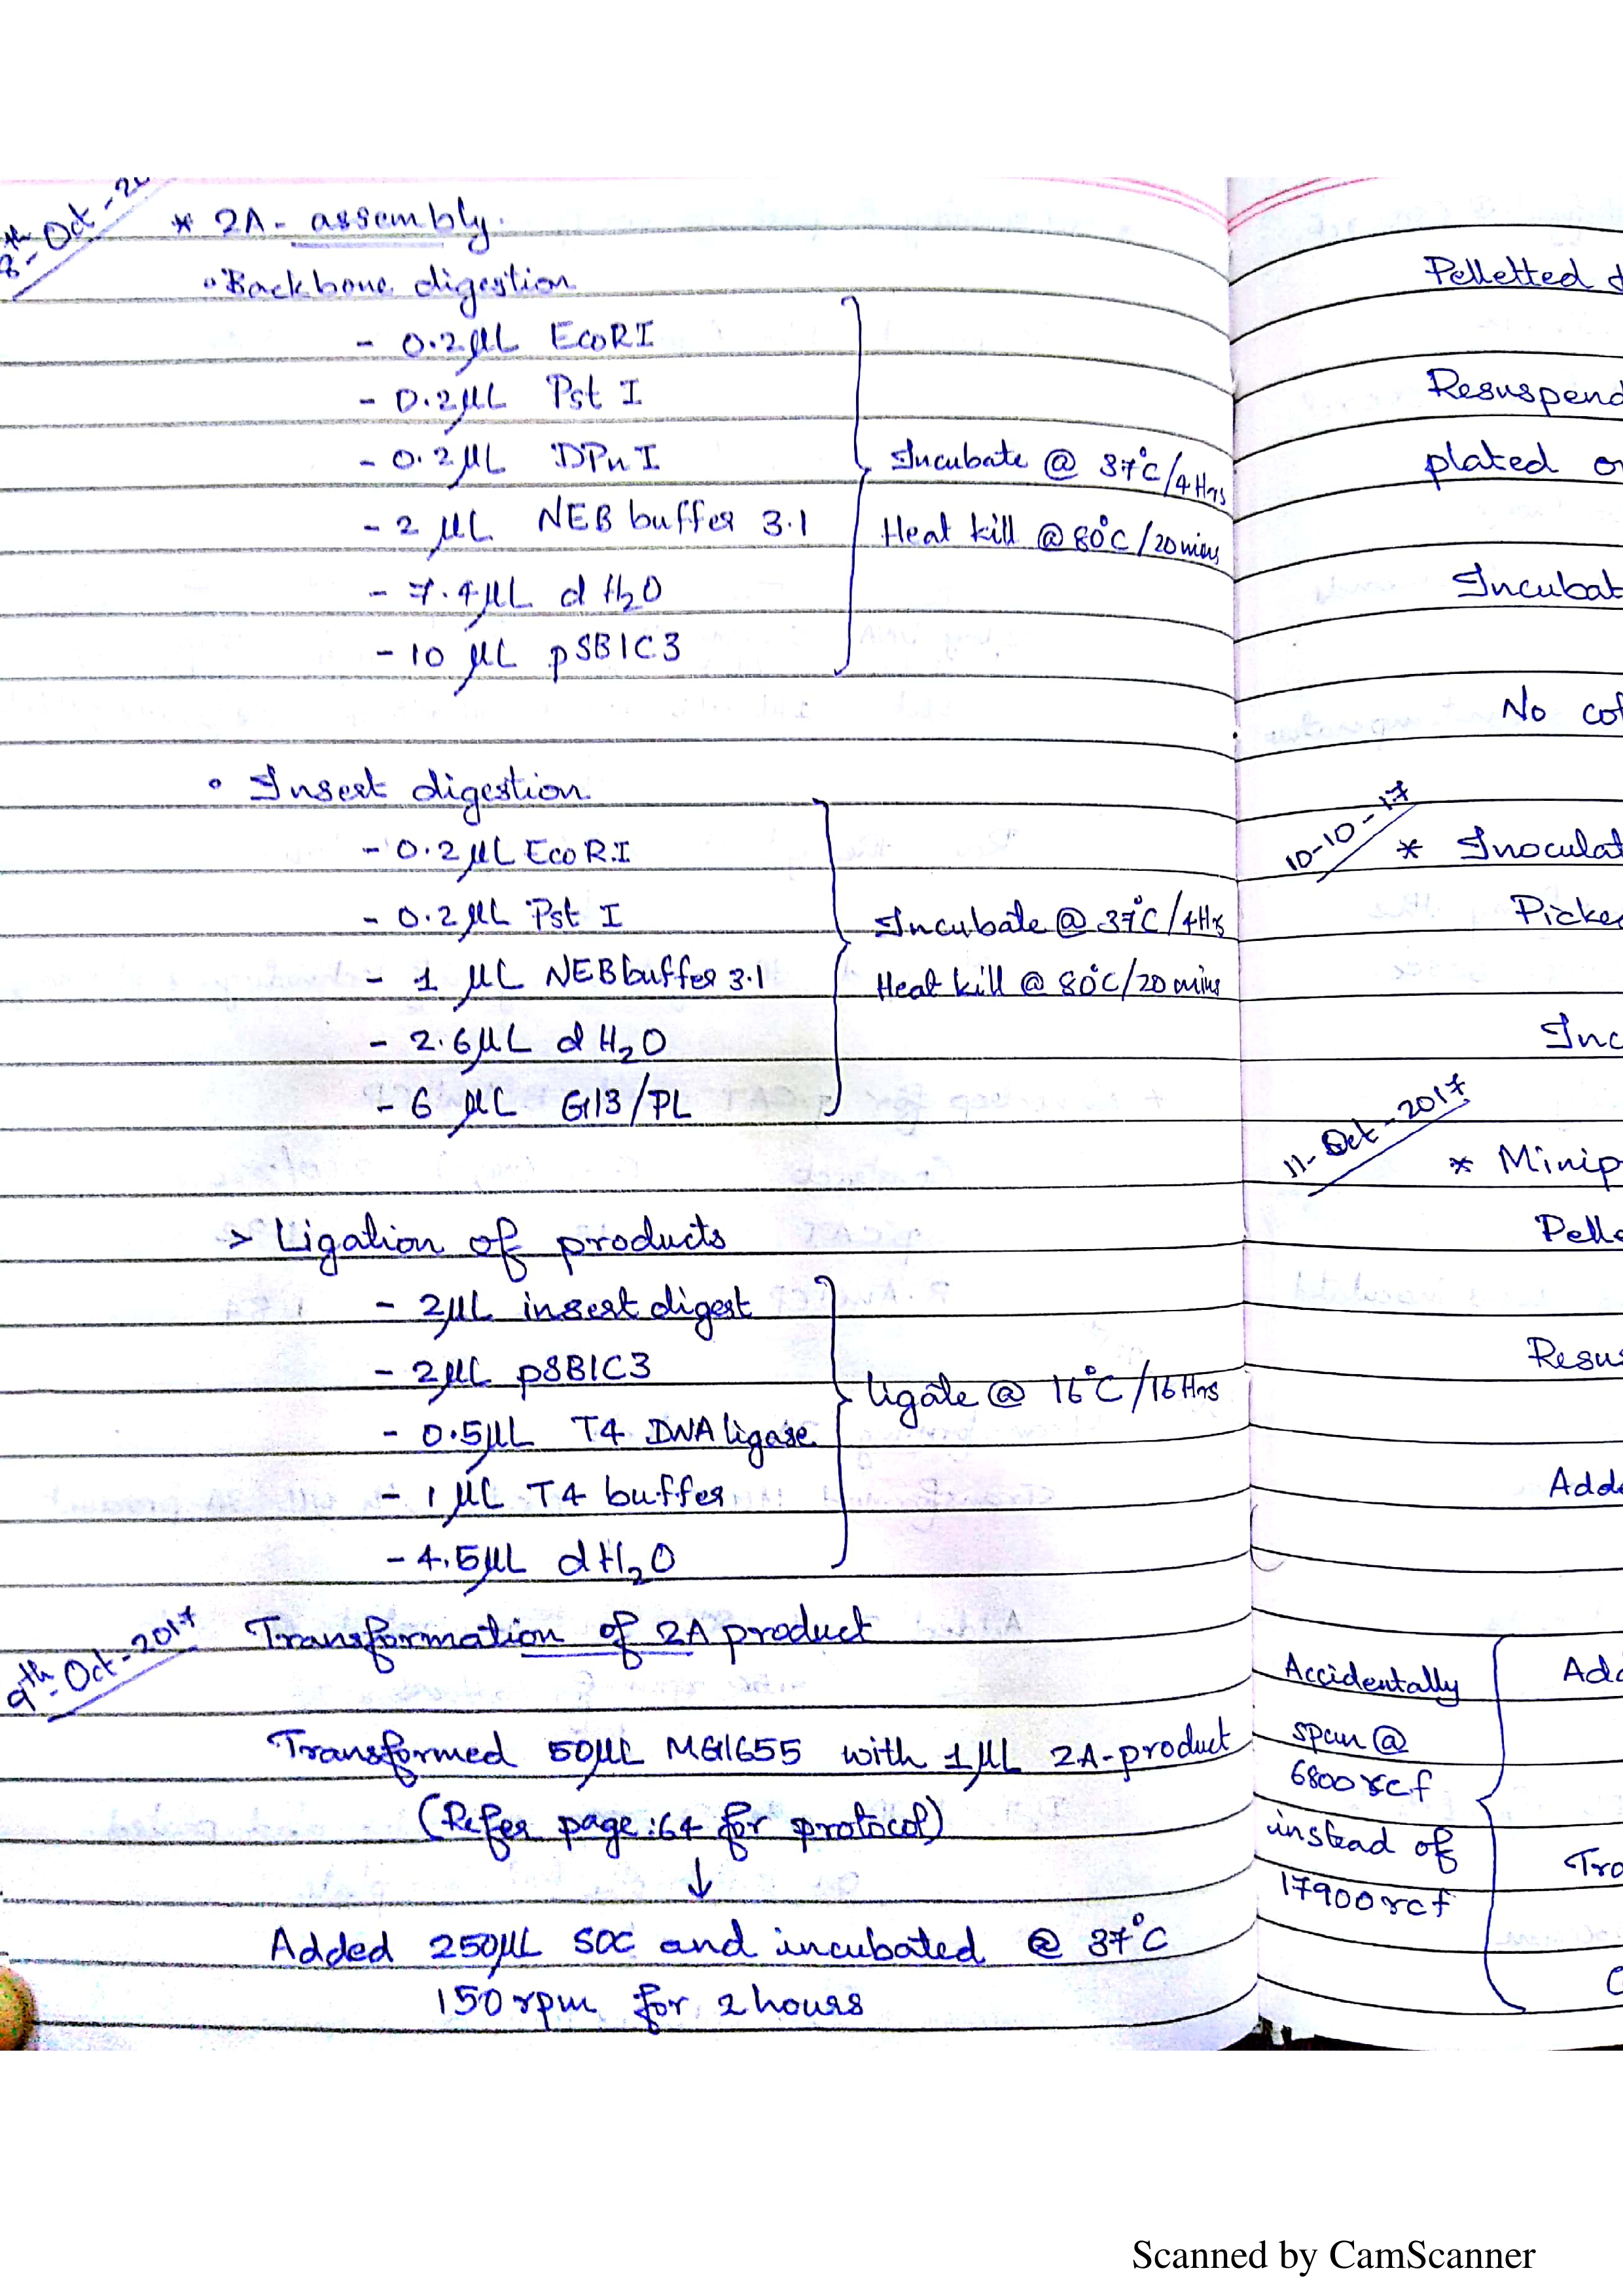 8th-Oct-20
* 2A-assembly.
• Backbone digestion
- 0.2µL EcoRI
- 0.2µL Pst I
- 0.2µL DPn I
- 2 µL NEB buffer 3.1
- 7.4µL d H₂O
- 10 µL pSB1C3
Incubate @ 37°C/4Hrs
Heat kill @ 80°C/20mins
• Insert digestion
- 0.2µL EcoR.I
- 0.2µL Pst I
- 1 µL NEBbuffer 3.1
- 2.6µL d H₂O
- 6 µL G113/PL
Incubate @ 37°C/4Hrs
Heat kill @ 80°C/20mins
> Ligation of products
- 2µL insert digest
- 2µL pSB1C3
- 0.5µL T4 DNA ligase
- 1 µL T4 buffer
- 4.5µL dH₂O
ligate @ 16°C/16Hrs
9th-Oct-2017
Transformation of 2A product
Transformed 50µL MG1655 with 1µL 2A-product
(Refer page:64 for protocol)
↓
Added 250µL SOC and incubated @ 37°C
150rpm for 2hours
Pelletted
Resuspend
plated
Incubat
No col
10-10-17
* Inoculat
Picke
Inc
11-Oct-2017
* Minip
Pelle
Resus
Adde
Accidentally
spun @
6800rcf
instead of
17900rcf
Add
Tra
Scanned by CamScanner